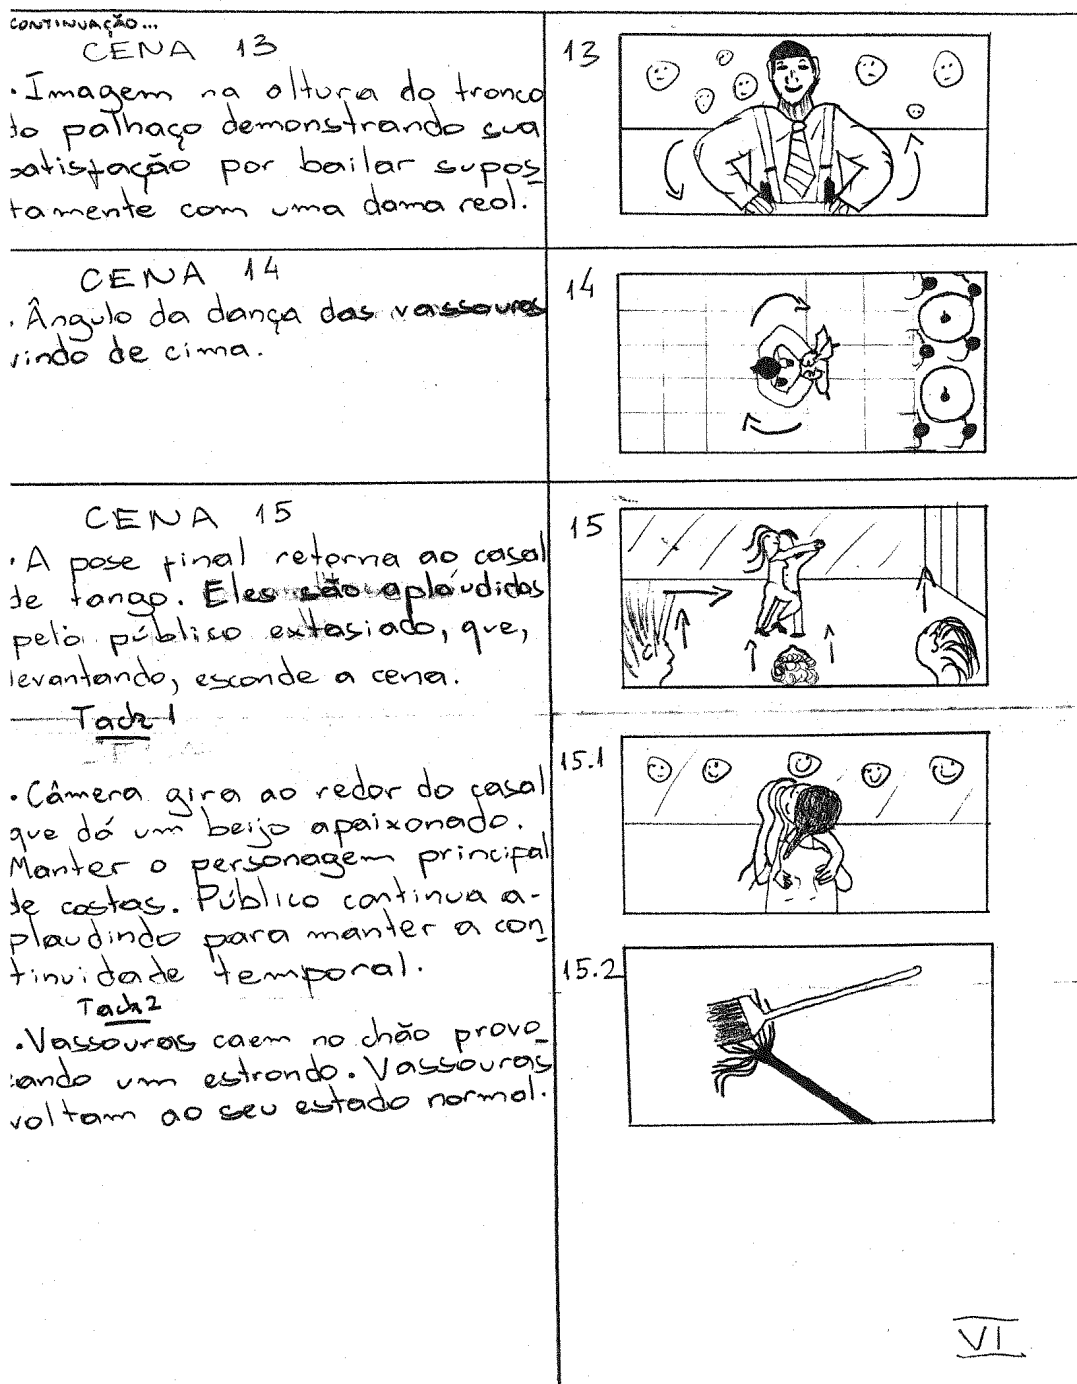 CONTINUAÇÃO...
CENA 13
. Imagem na altura do tronco
do palhaço demonstrando sua
satisfação por bailar supos
tamente com uma dama real.
13
CENA 14
. Ângulo da dança das vassouras
vindo de cima.
14
CENA 15
. A pose final retorna ao casal
de tango. Eles são aplaudidos
pelo público extasiado, que,
levantando, esconde a cena.
15
Tack 1
. Câmera gira ao redor do casal
que dá um beijo apaixonado.
Manter o personagem principal
de costas. Público continua a-
plaudindo para manter a con
tinuidade temporal.
15.1
Tack 2
. Vassouras caem no chão provo
cando um estrondo. Vassouras
voltam ao seu estado normal.
15.2
VI